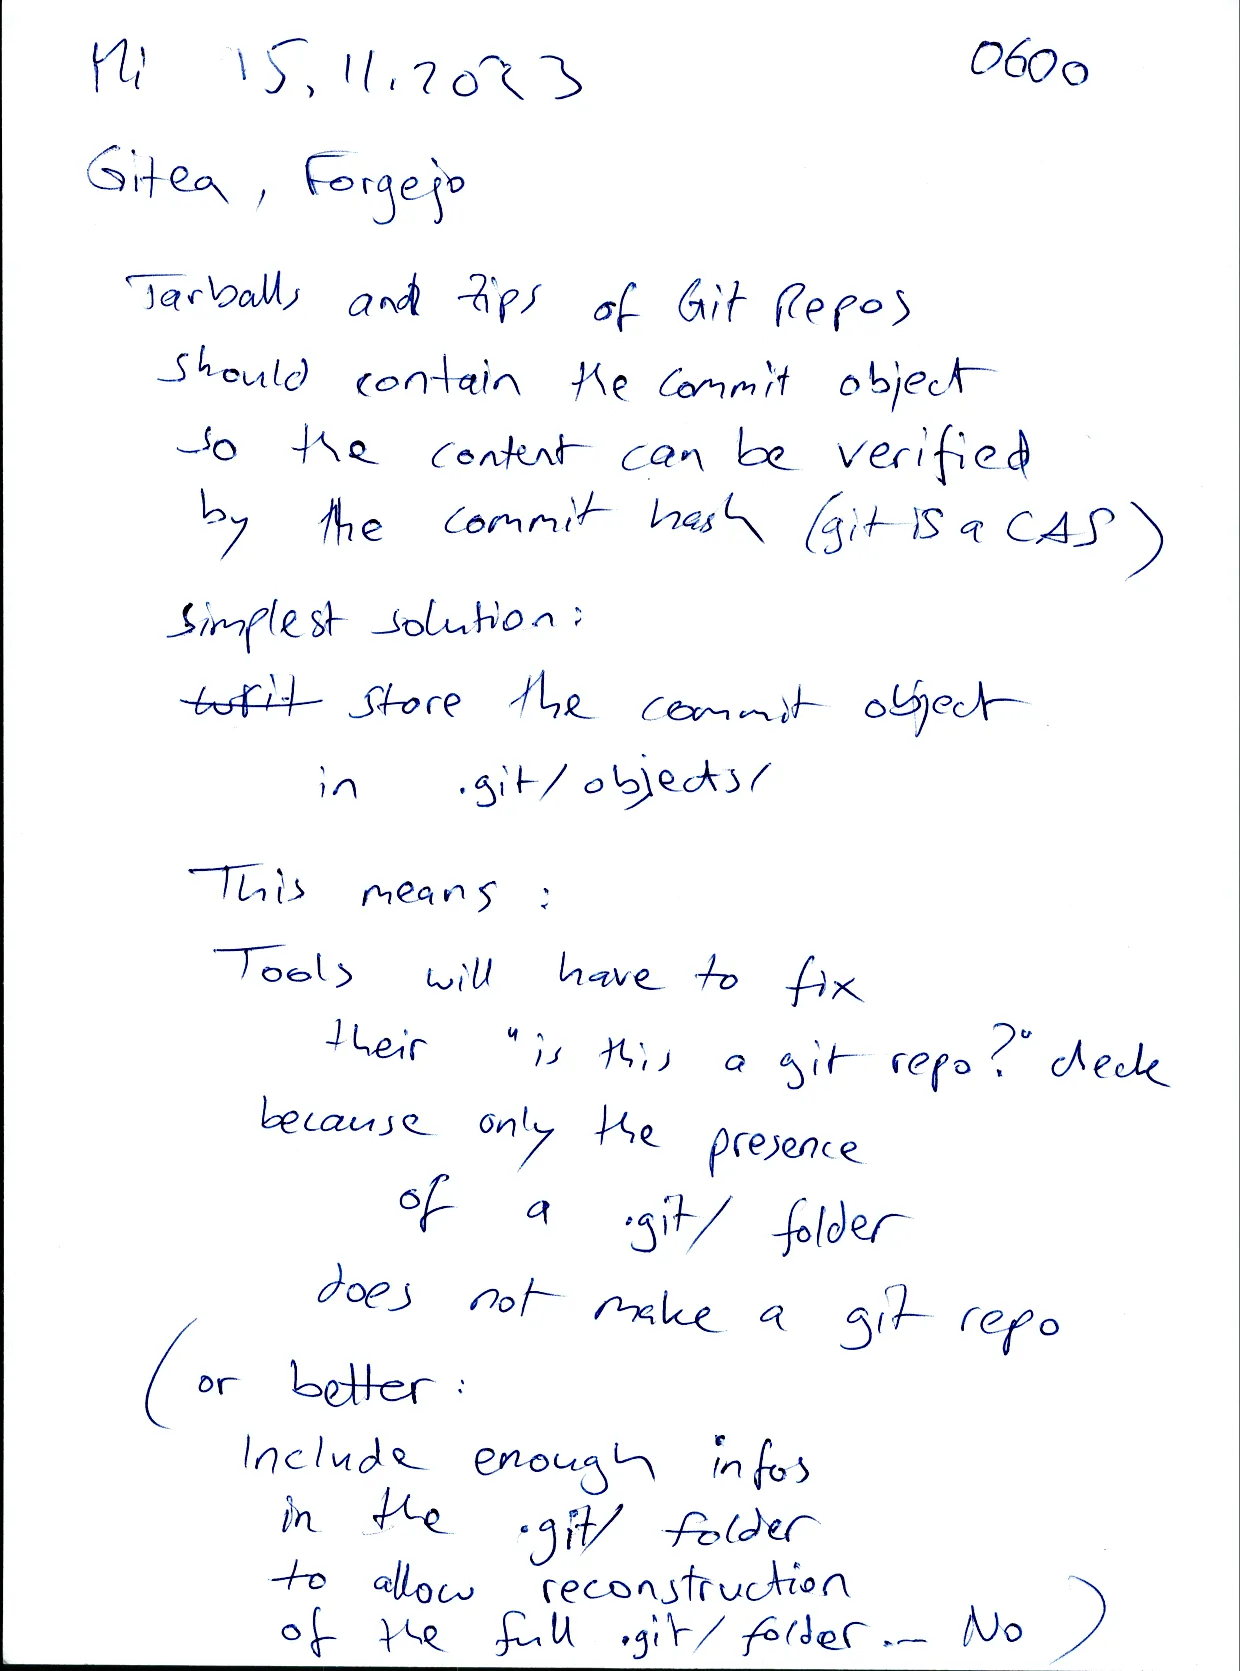 Mi 15.11.2023 0600
Gitea, Forgejo
Tarballs and zips of Git Repos
should contain the commit object
so the content can be verified
by the commit hash (git is a CAS)
simplest solution:
writ store the commit object
in .git/objects/
This means:
Tools will have to fix
their "is this a git repo?" check
because only the presence
of a .git/ folder
does not make a git repo
(or better:
Include enough infos
in the .git/ folder
to allow reconstruction
of the full .git/ folder... No)